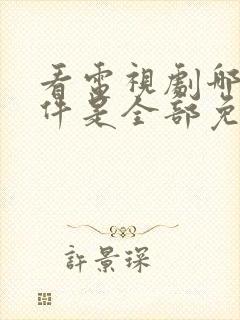 看電視劇哪
件是全部免
許景琛